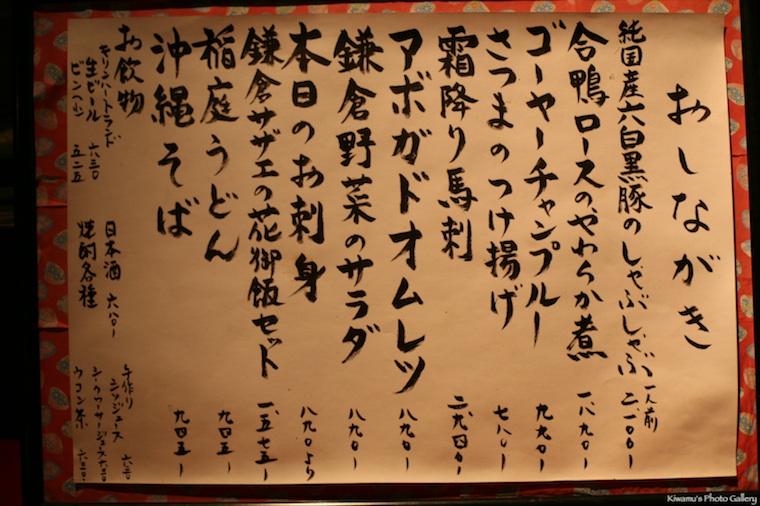 おしながき
純国産六白黒豚のしゃぶしゃぶ 一人前 二、一〇〇ー
合鴨ロースのやわらか煮 一、八九〇ー
ゴーヤーチャンプルー 九九〇ー
さつまのつけ揚げ 七八〇ー
霜降り馬刺
アボガドオムレツ 八九〇ー
鎌倉野菜のサラダ 八九〇ー
本日のお刺身 八九〇より
鎌倉サザエの花御飯セット 一、五七五ー
稲庭うどん 九四五ー
沖縄そば 九四五ー
お飲物
キリンハートランド
生ビール 六三〇
ビン(小) 五二五
日本酒 六八〇ー
焼酎各種
手作り
シソジュース 六三〇
シークワーサージュース 六三〇
ウコン茶
Kiwamu's Photo Gallery